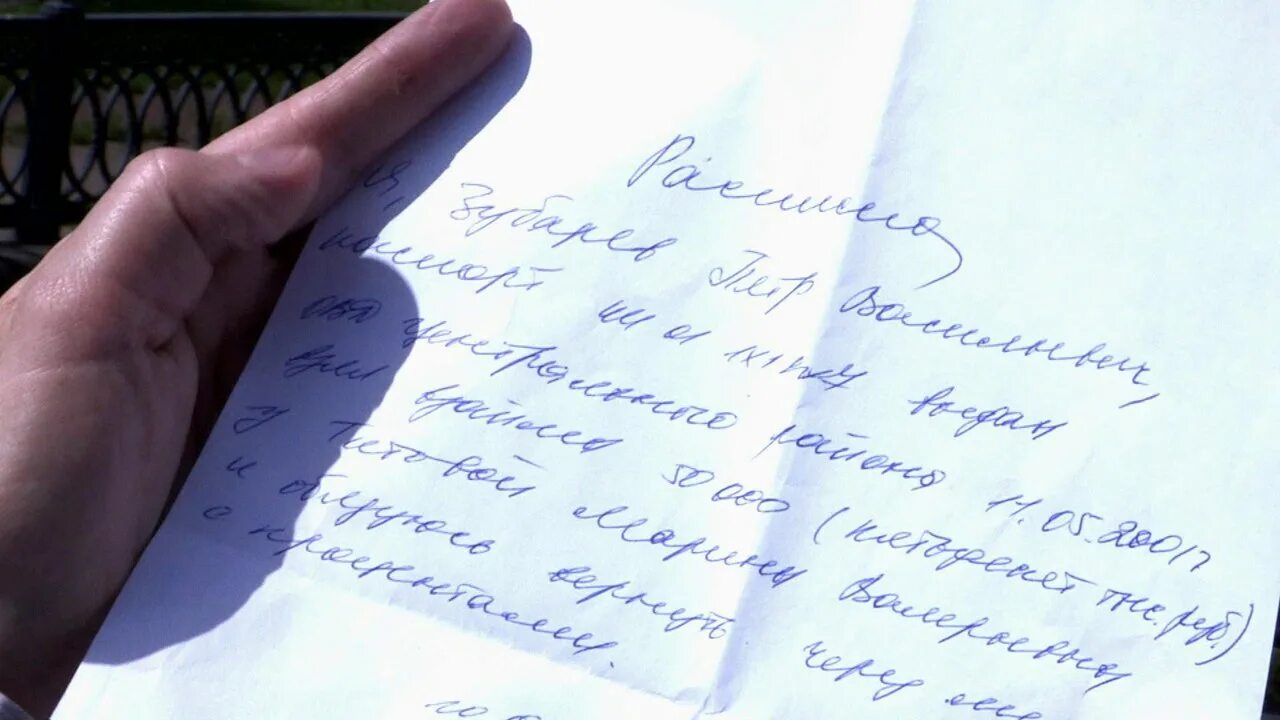 Расписка
Я, Зубарев Петр Васильевич,
паспорт 41 01 выдан
ОВД Центрального района 11.05.2001г
взял взаймы 50 000 (пятьдесят тыс. руб.)
у Титовой Марины Валерьевны
и обязуюсь вернуть через
с процентами.